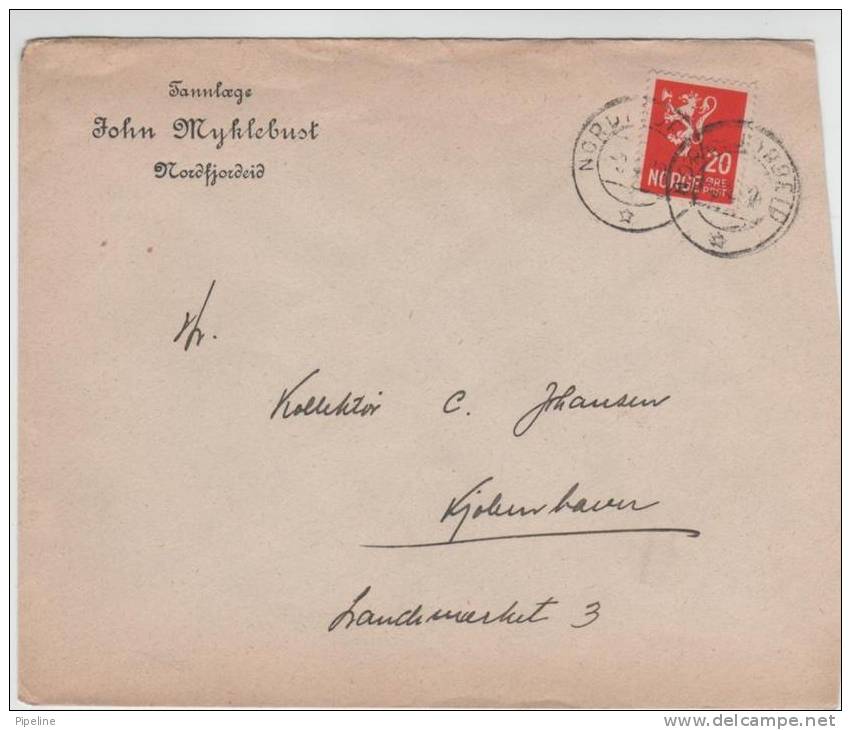 Tannlæge
John Myklebust
Nordfjordeid
20
NORGE ØRE
POST
Hr.
Kollektør C. Johansen
Kjøbenhavn
Landemærket 3
Pipeline
www.delcampe.net